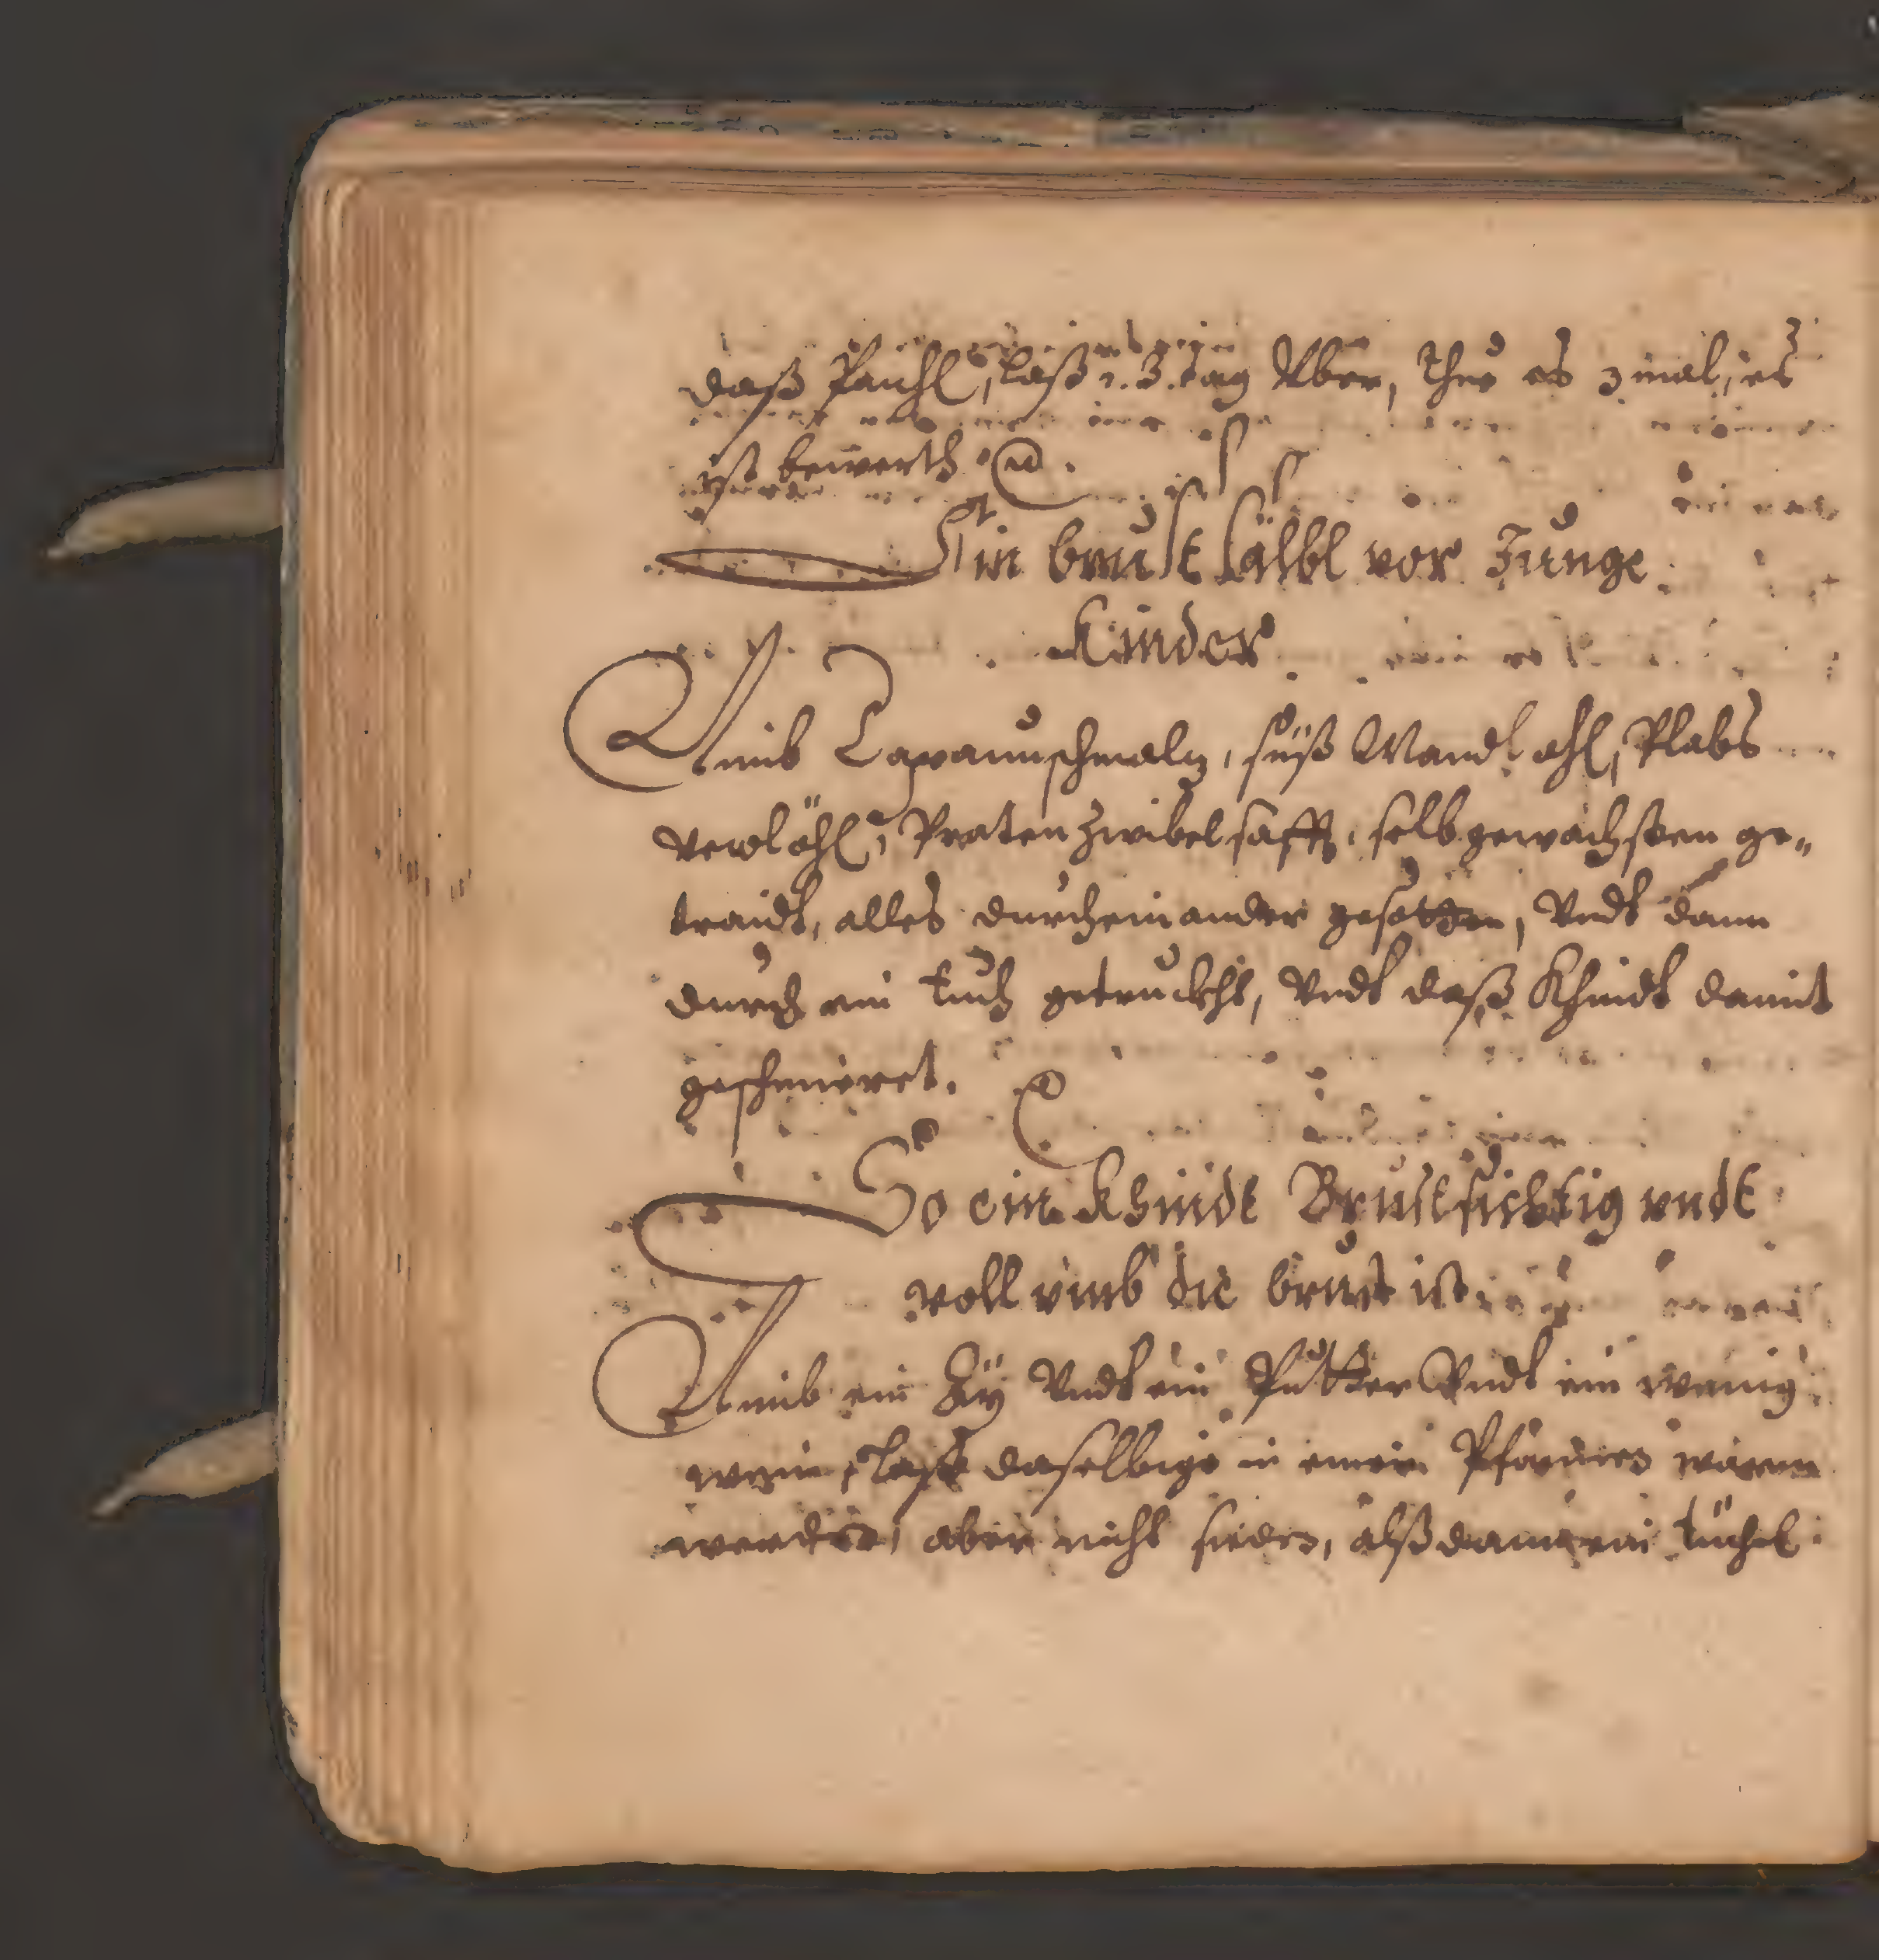 daß Päuchl, laß 2. 3. tag Vber, thue es 3 mal, es
ist bewerth.
Ein brust sälbl vor Junge
Kinder
Nimb Capaunschmalz, süß Mandl öhl, Plabs
veiolöhl, Praten zwibel safft, selb gewachsten ge„
traidt, alles durcheinander gesotten, Vndt dann
durch ein tuch getruckht, Vndt daß Khindt damit
geschmieret.
So ein Khindt Brustsichtig vndt
voll vmb die brust ist.
Nimb ein Ay Vndt ein Putter Vndt ein wenig
wein, laß daselbige in einem Pfännel warm
werden, aber nicht sieden, alßdann ein tüchel